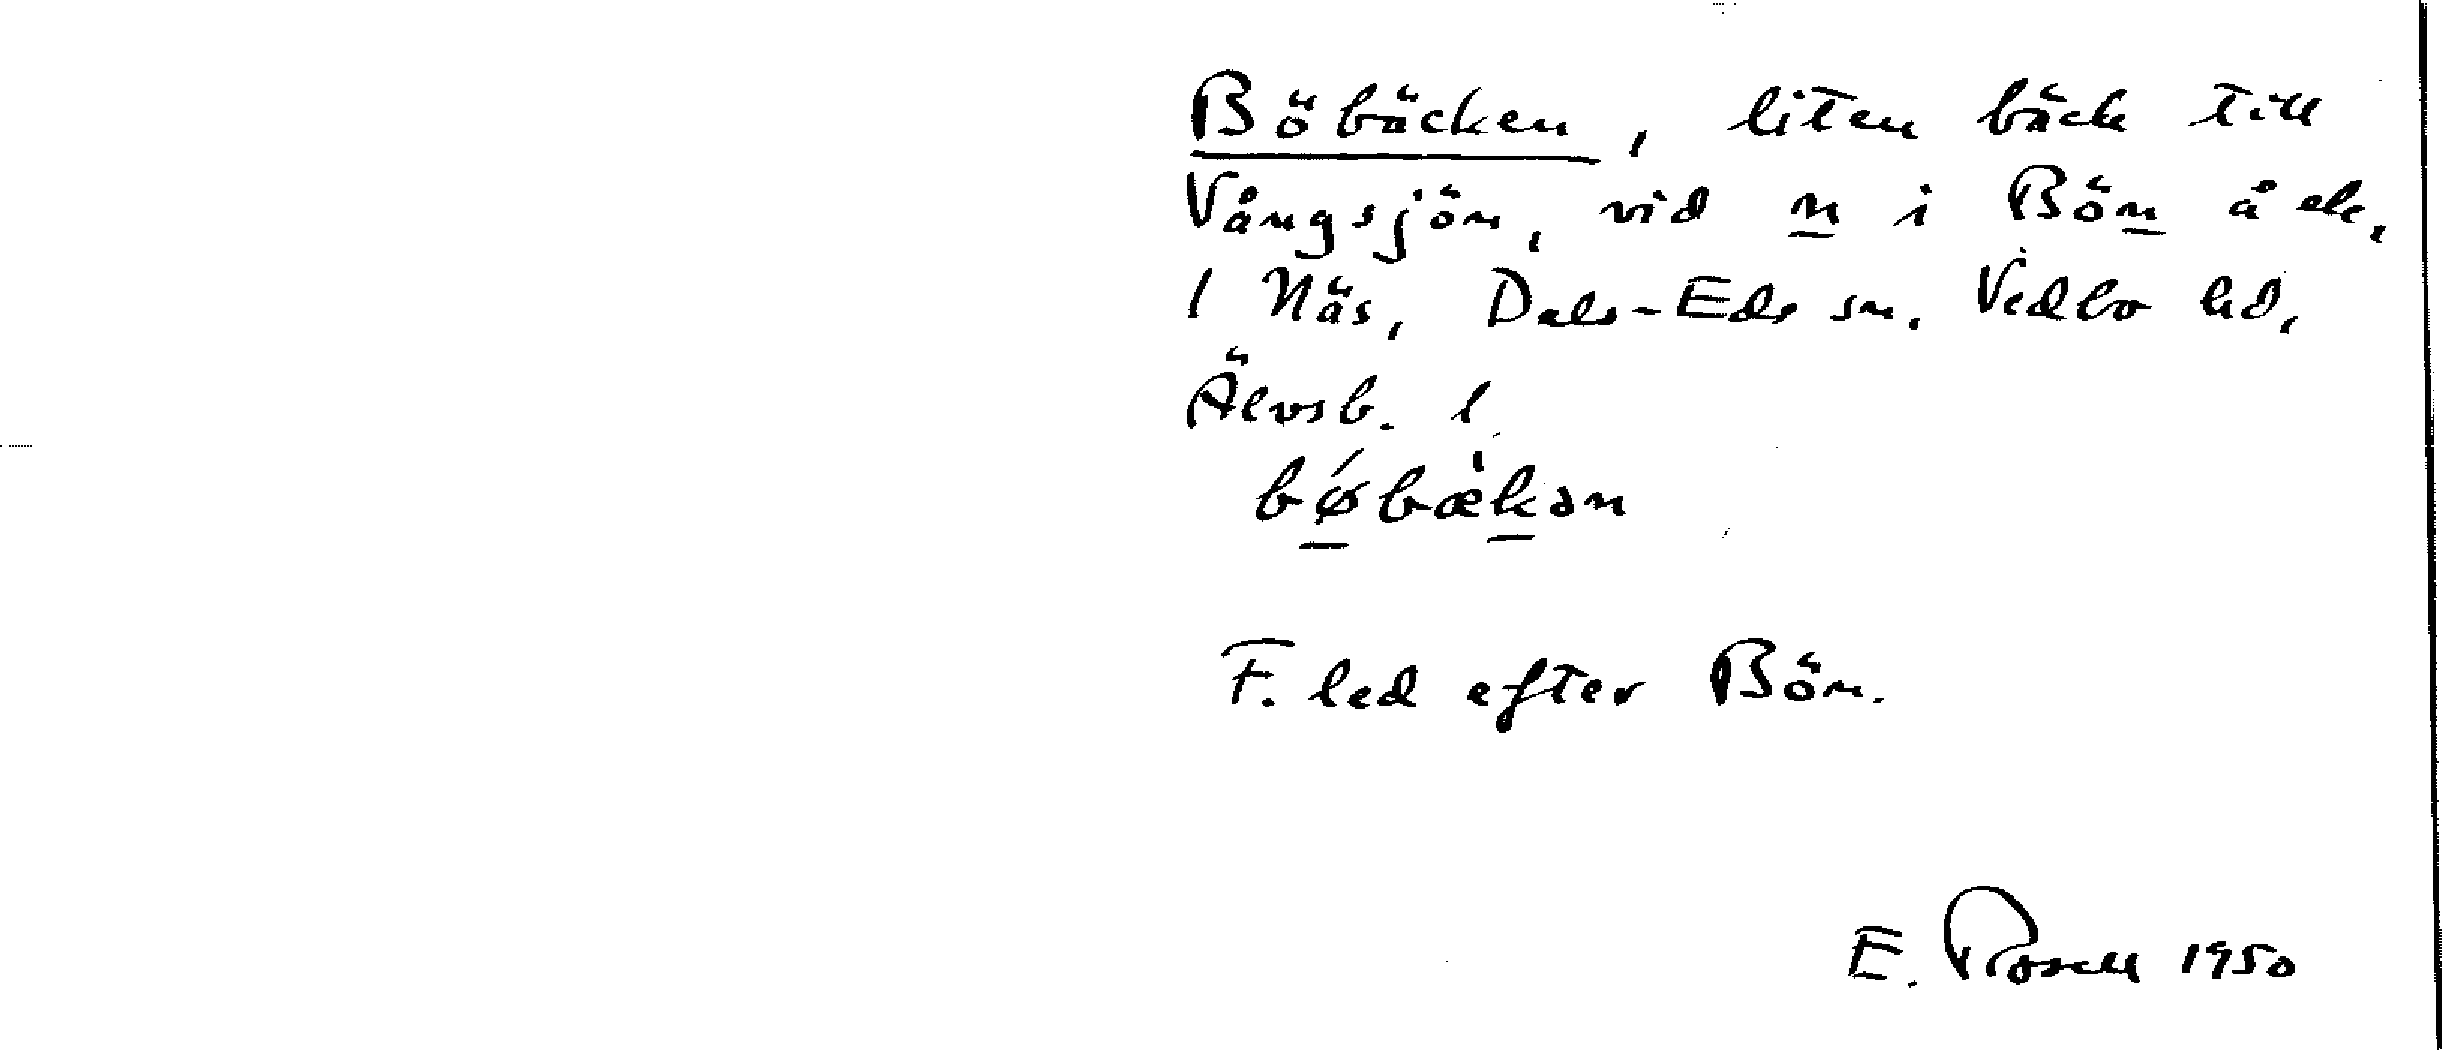 Böbäcken, liten bäck till
Vångsjön, vid n i Bön å ek.
1 Näs, Dals-Eds sn. Vedbo hd,
Älvsb. l.
bǿbæ̀kən
F. led efter Bön.
E. Rosell 1950